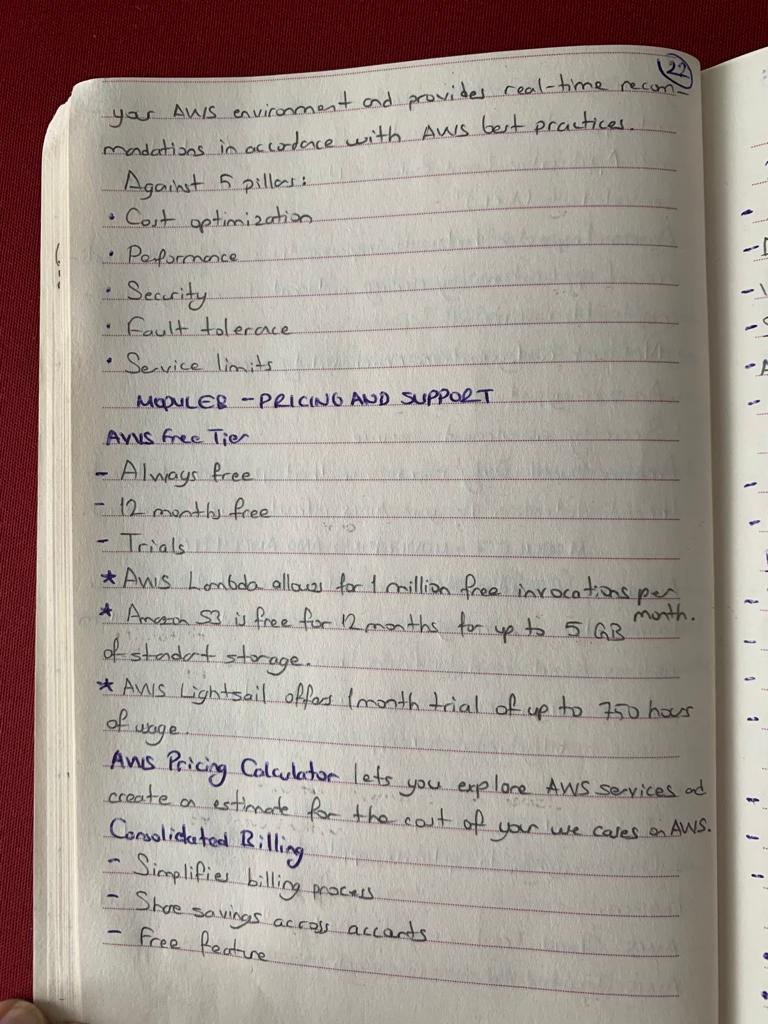 22
your AWS environment and provides real-time recom-
mendations in accordance with AWS best practices.
Against 5 pillars:
• Cost optimization
• Performance
• Security
• Fault tolerance
• Service limits
MODULE 8 - PRICING AND SUPPORT
AWS Free Tier
- Always free
- 12 months free
- Trials
* AWS Lambda allows for 1 million free invocations per
month.
* Amazon S3 is free for 12 months for up to 5 GB
of standart storage.
* AWS Lightsail offers 1 month trial of up to 750 hours
of usage.
AWS Pricing Calculator lets you explore AWS services and
create an estimate for the cost of your use cases on AWS.
Consolidated Billing
- Simplifies billing process
- Share savings accross accounts
- Free feature